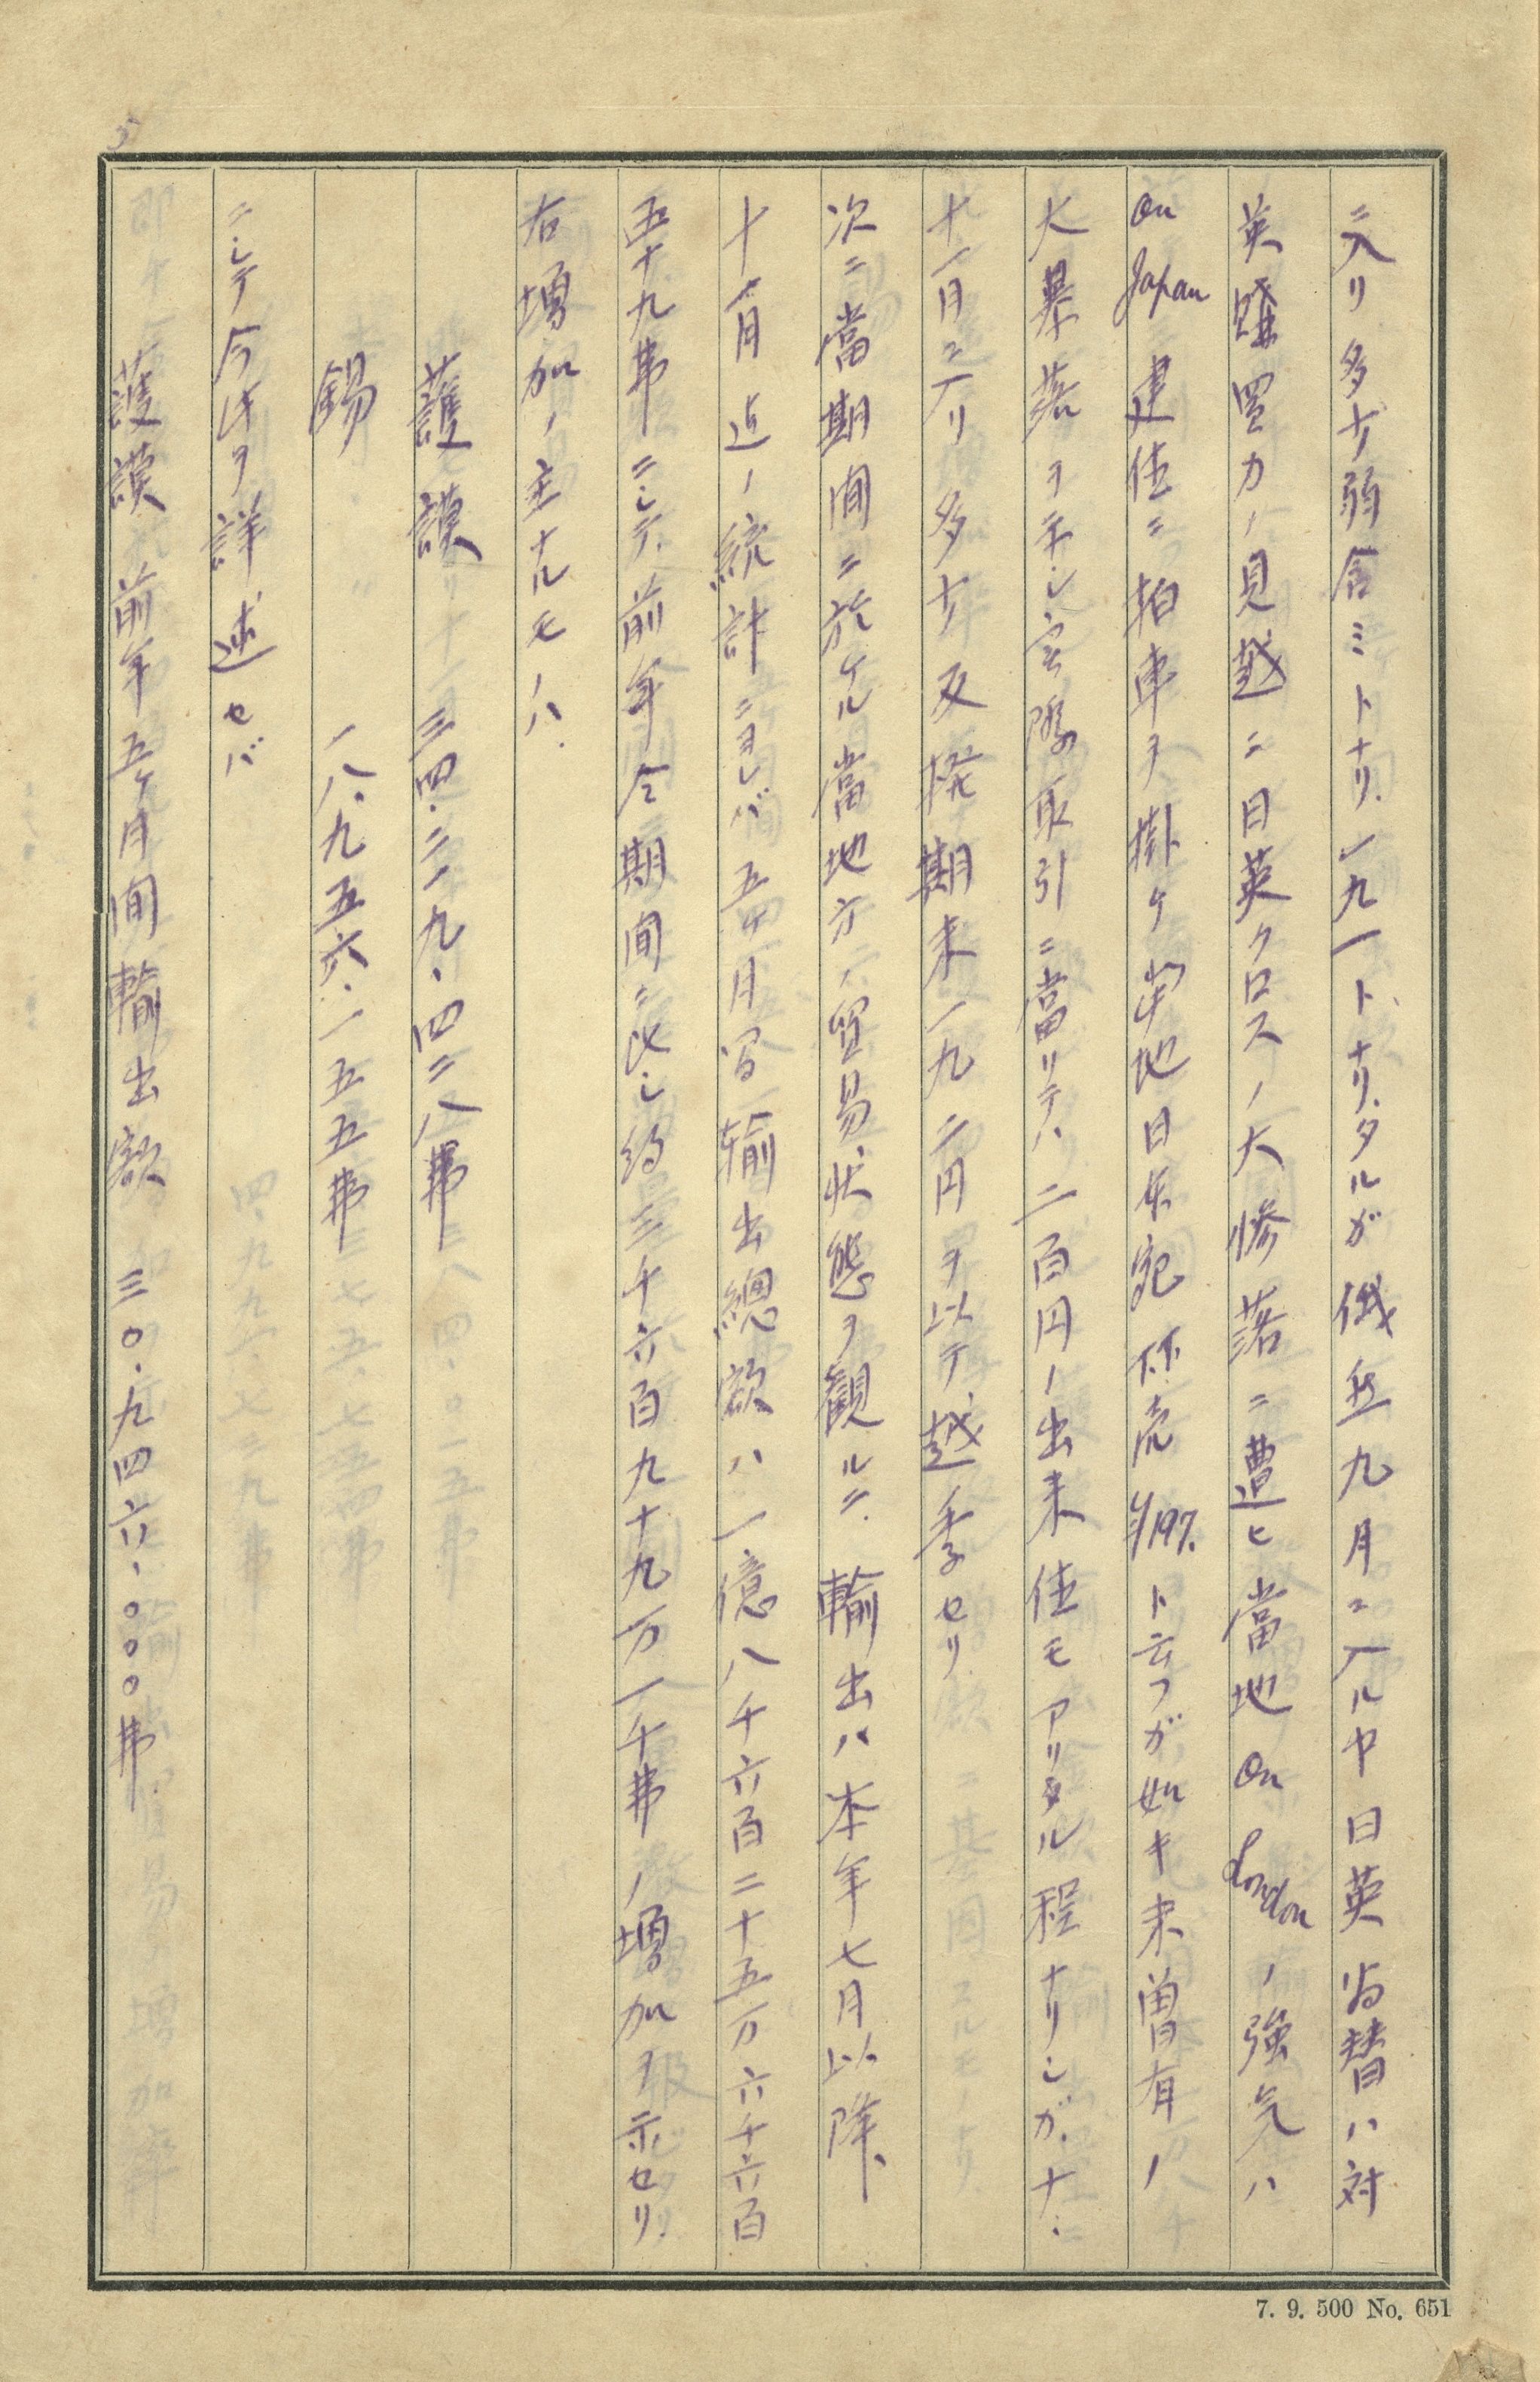 ニ入リ多少弱含ミトナリ、一九一トナリタルガ俄然九月ニ入ルヤ日英為替ハ対
英購買力ノ見越ニ日英クロスノ大惨落ニ遭ヒ當地 on London ノ強気ハ
on Japan 建値ニ拍車ヲ掛ケ当地日本宛 売 ¥197. ト云フガ如キ未曽有ノ
大暴落ヲ示シ、実際取引ニ當リテハ二百円ノ出来値モアリタル程ナリシガ、十、
十一月ニ入リ多少反撥期末一九二円ヲ以テ越季セリ
次ニ當期間ニ於ケル當地方ノ貿易状態ヲ観ルニ、輸出ハ本年七月以降、
十一月迄ノ統計ニヨレバ五ケ月間輸出總額ハ一億八千六百二十五万六千六百
五十九弗ニシテ、前年仝期間ニ比シ約三千六百九十九万一千弗ノ増加ヲ示セリ、
右増加ノ主ナルモノハ、
護謨 三四、二一九、四二八弗
錫 一八、九五六、一五五弗
ニシテ今此ヲ詳述セバ
護謨 前年五ケ月間輸出額 三〇、九四六、〇〇〇弗
7. 9. 500 No. 651